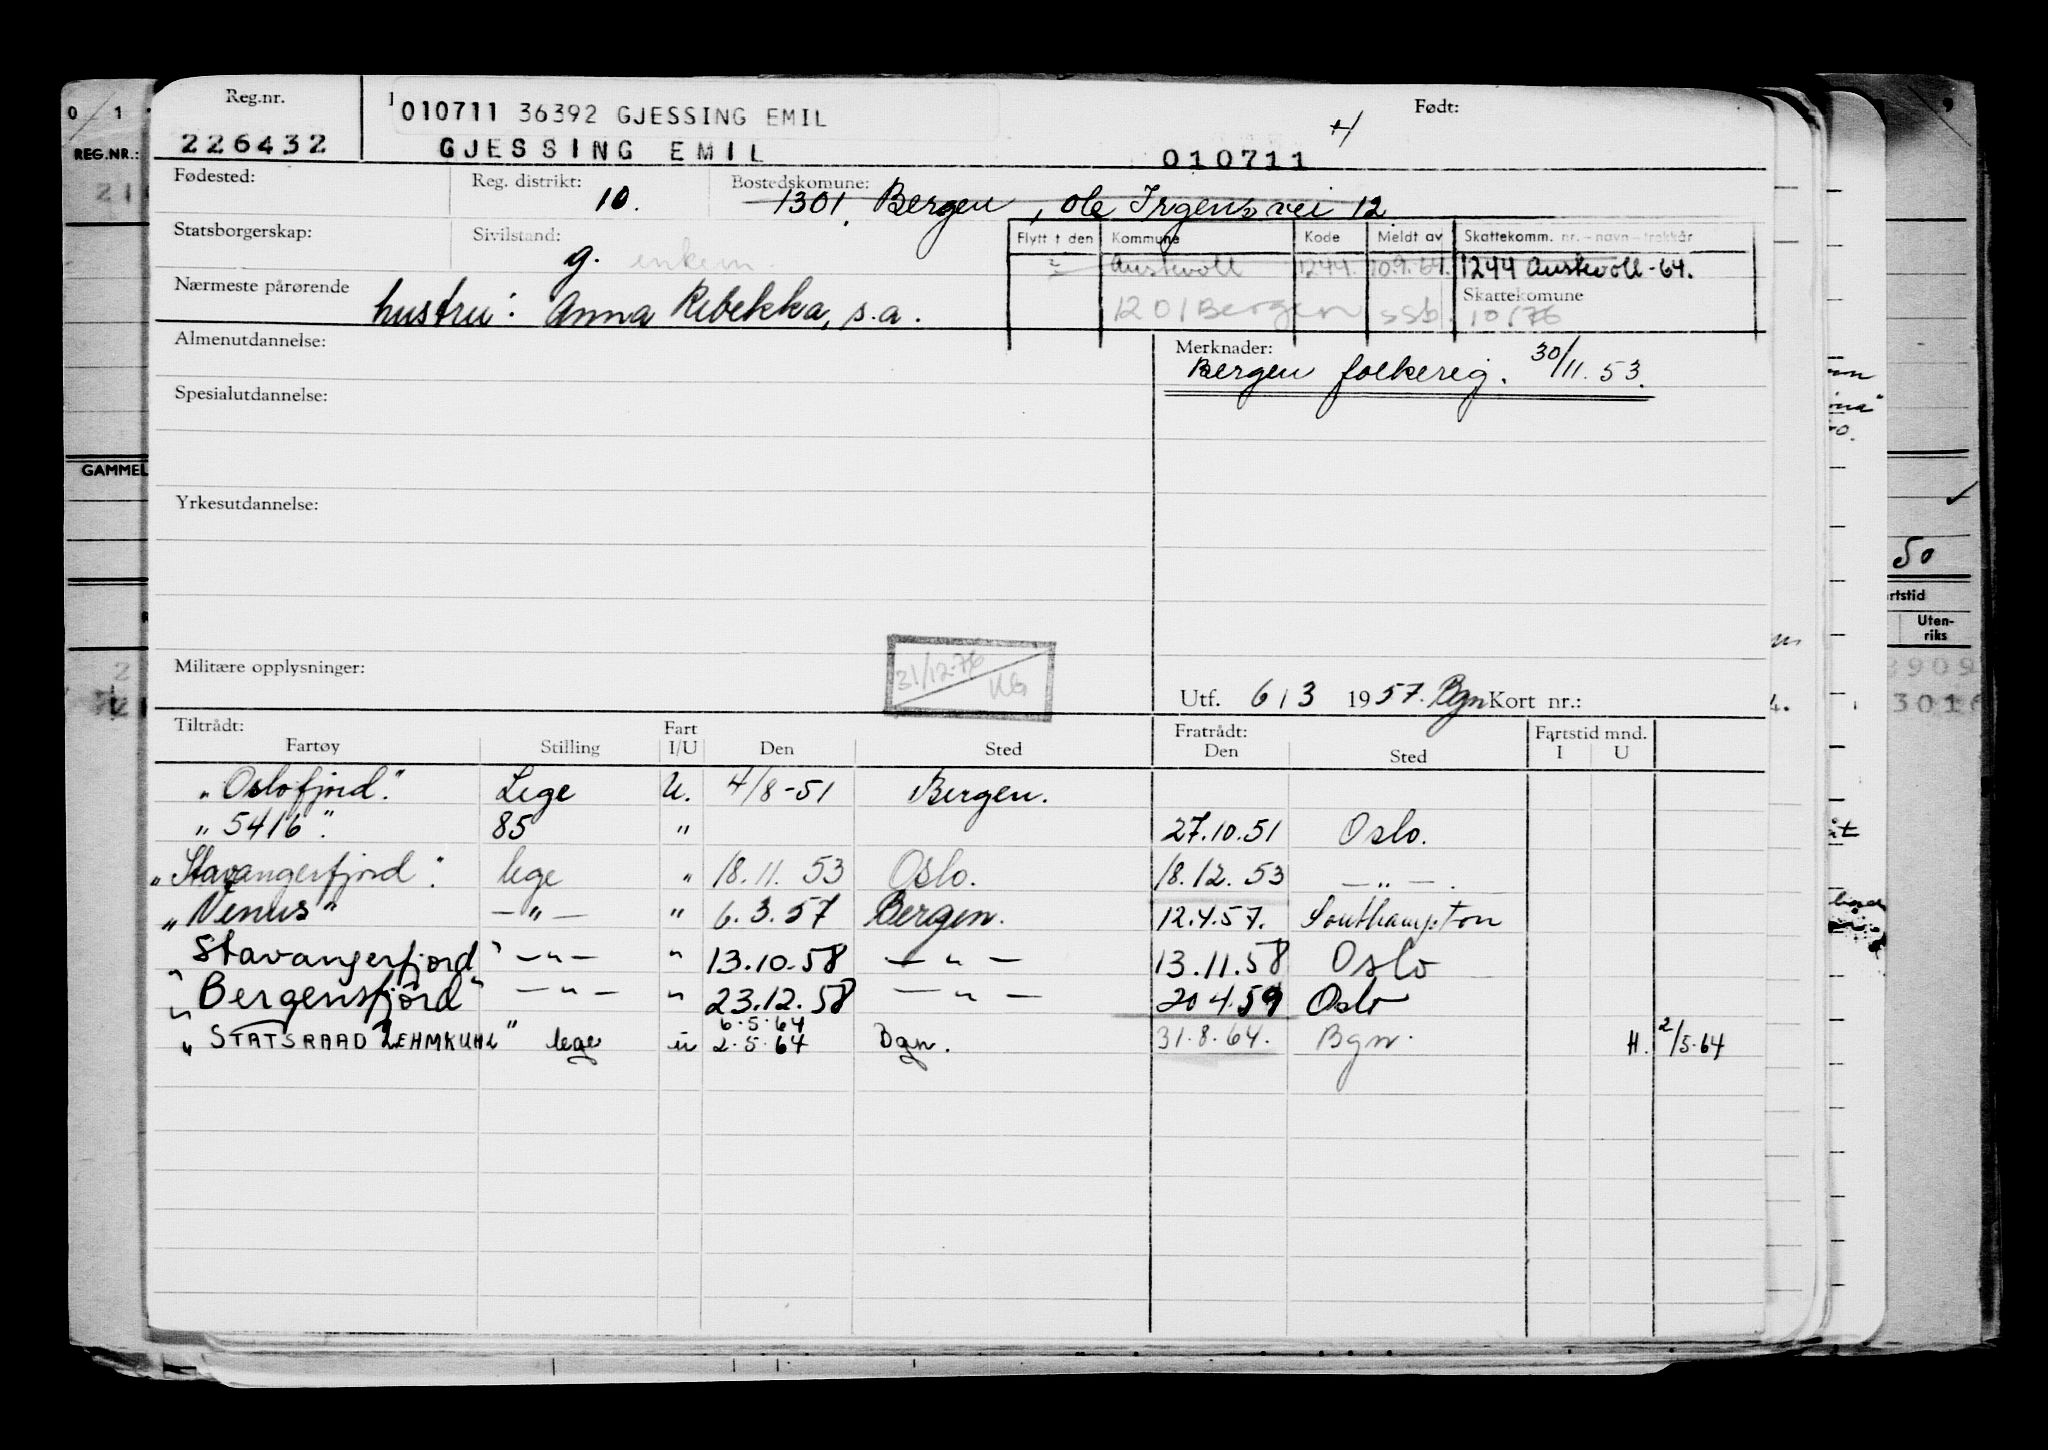 Reg.nr.
226432
010711 36392 GJESSING EMIL
GJESSING EMIL
010711
Født:
Fødested:
Reg. distrikt: 10.
Bostedskomune: 1301 Bergen, Ole Irgens vei 12
Statsborgerskap:
Sivilstand: g. enkem.
Flytt t den Kommune Kode Meldt av Skattekomm. nr. - navn - trekkår
Austevoll 1244. 10.9.64. 1244 Austevoll -64.
Nærmeste pårørende hustru: Anna Rebekka, s.a.
Skattekomune
1201 Bergen ssb 10/76
Almenutdannelse:
Merknader:
Bergen folkereg. 30/11.53.
Spesialutdannelse:
Yrkesutdannelse:
Militære opplysninger:
31/12-76
Utf. 6/3 1957. Bgn Kort nr.:
Tiltrådt: Fratrådt: Fartstid mnd.
Fartøy Stilling Fart I/U Den Sted Den Sted I U
"Oslofjord". Lege U. 4/8-51 Bergen.
"5416". 85 " 27.10.51 Oslo.
"Stavangerfjord". lege " 18.11.53 Oslo. 18.12.53 — " —.
"Venus" — " — " 6.3.57 Bergen. 12.4.57. Southampton
Stavangerfjord" — " — " 13.10.58 — " — 13.11.58 Oslo
"Bergensfjord" — " — " 23.12.58 — " — 20 4.59 Oslo
6.5.64
"STATSRAAD LEHMKUHL" lege u 2.5.64 Bgn. 31.8.64. Bgn. H. 2/5.64
REG.NR.:
GAMMEL
50
rtstid
Uten-
riks